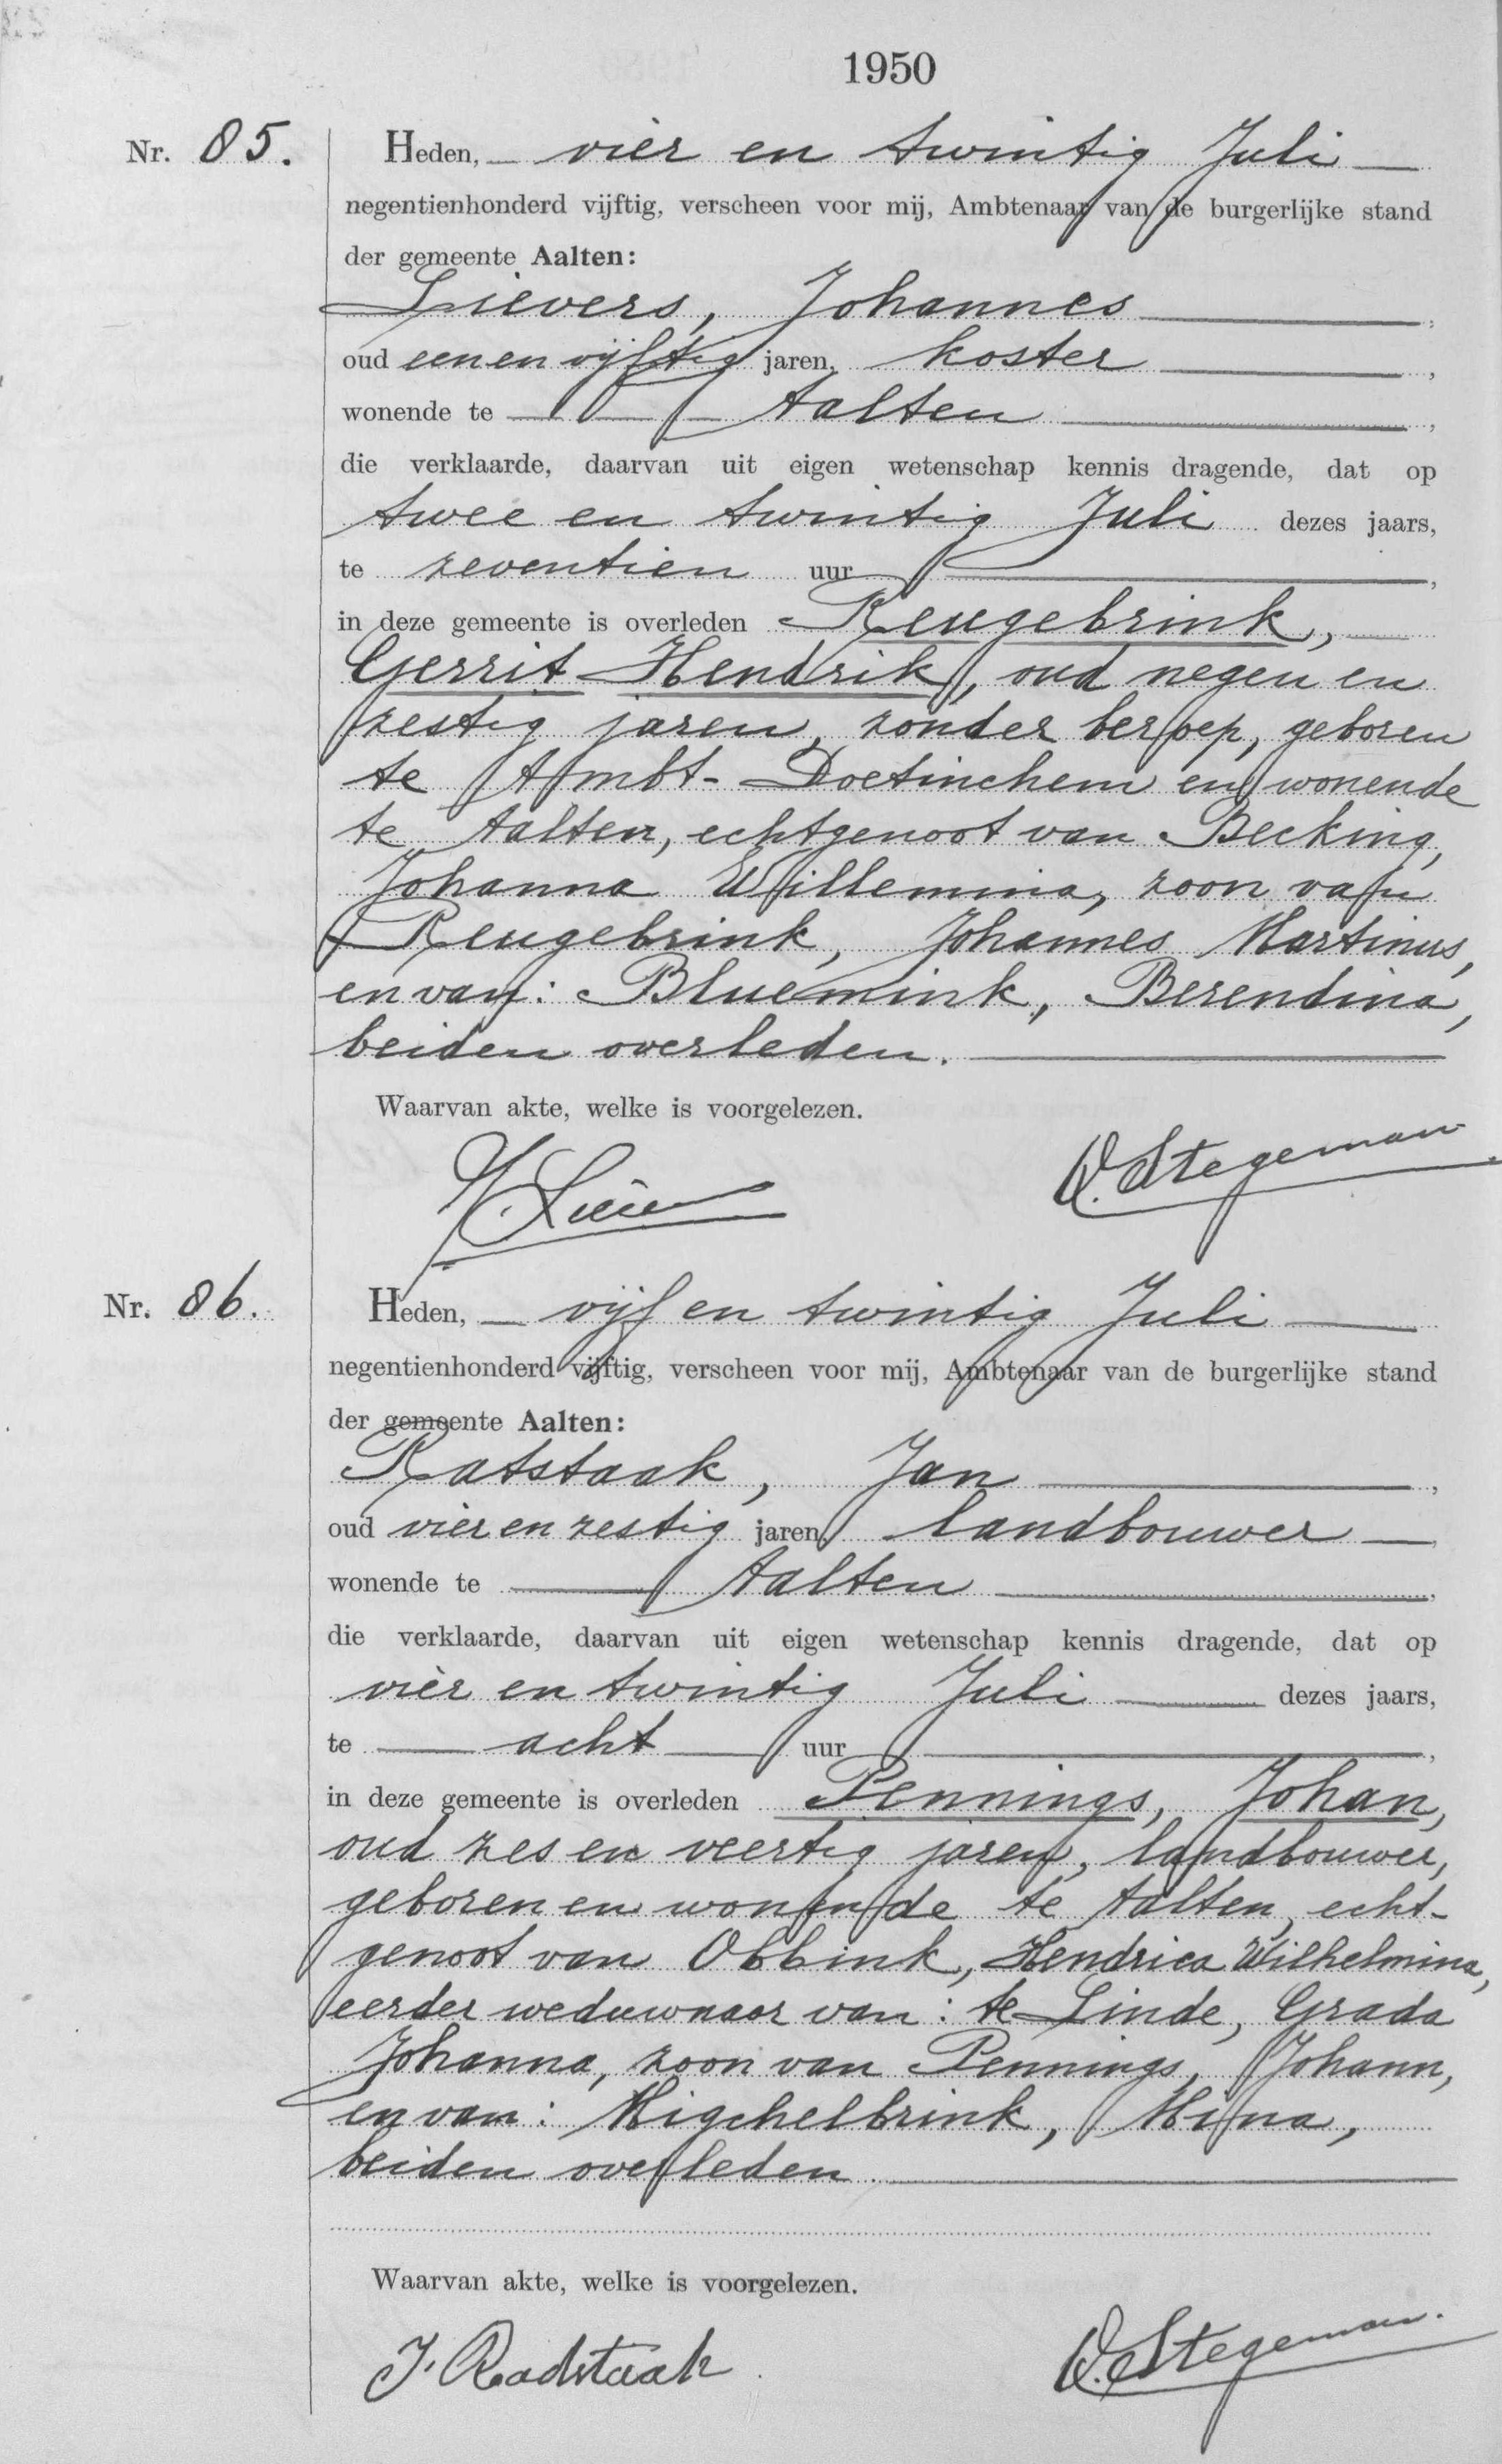 1950
Nr. 85.
Heden, vier en twintig Juli
negentienhonderd vijftig, verscheen voor mij, Ambtenaar van de burgerlijke stand
der gemeente Aalten:
Lievers, Johannes,
oud een en vijftig jaren, koster,
wonende te Aalten,
die verklaarde, daarvan uit eigen wetenschap kennis dragende, dat op
twee en twintig Juli dezes jaars,
te zeventien uur,
in deze gemeente is overleden Reugebrink,
Gerrit Hendrik, oud negen en
zestig jaren, zonder beroep, geboren
te Ambt-Doetinchem en wonende
te Aalten, echtgenoot van Becking,
Johanna Willemina, zoon van
Reugebrink, Johannes Martinus,
en van: Bluemink, Berendina,
beiden overleden.
Waarvan akte, welke is voorgelezen.
D. Stegeman.
Nr. 86.
Heden, vijf en twintig Juli
negentienhonderd vijftig, verscheen voor mij, Ambtenaar van de burgerlijke stand
der gemeente Aalten:
Ratstaak, Jan,
oud vier en zestig jaren, landbouwer,
wonende te Aalten,
die verklaarde, daarvan uit eigen wetenschap kennis dragende, dat op
vier en twintig Juli dezes jaars,
te acht uur,
in deze gemeente is overleden Pennings, Johan,
oud zes en veertig jaren, landbouwer,
geboren en wonende te Aalten, echt-
genoot van Obbink, Hendrica Wilhelmina,
eerder weduwnaar van: te Linde, Grada
Johanna, zoon van Pennings, Johann,
en van: Migchelbrink, Mina,
beiden overleden.
Waarvan akte, welke is voorgelezen.
J. Radstaak.
D. Stegeman.